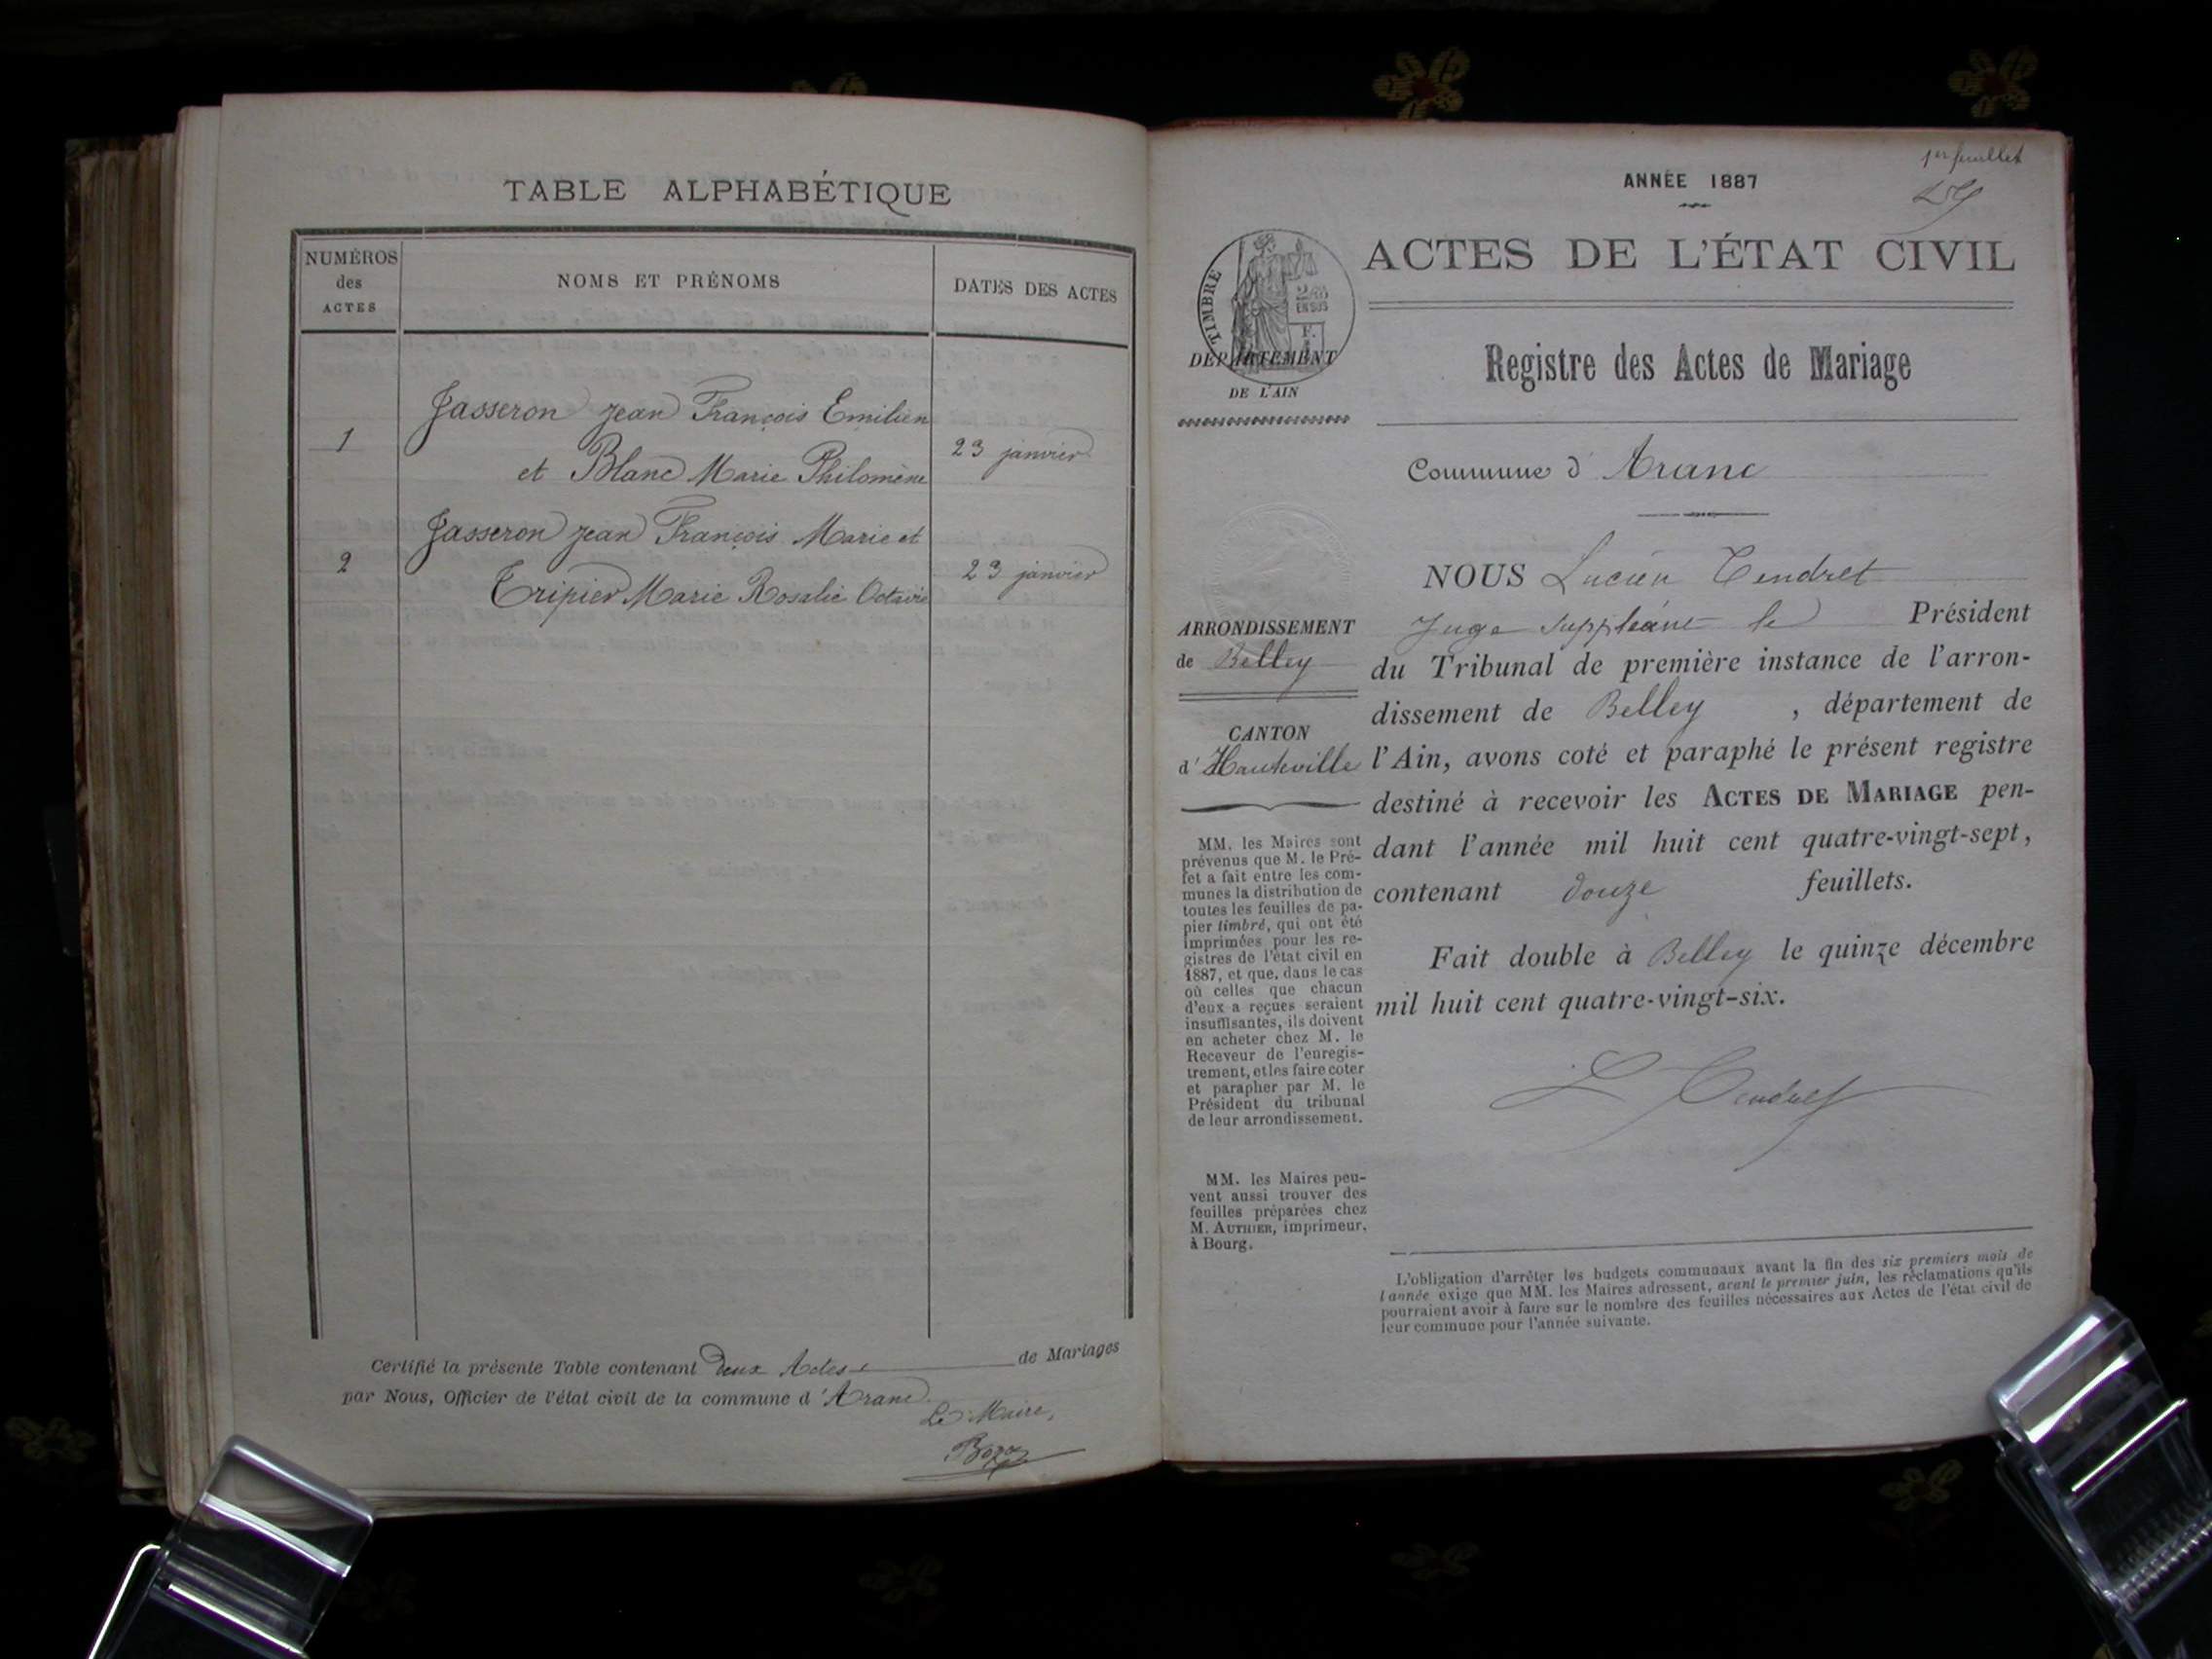 TABLE ALPHABÉTIQUE
NUMÉROS
des
ACTES
NOMS ET PRÉNOMS
DATES DES ACTES
Jasseron jean François Emilien
1
23 janvier
et Blanc Marie Philomène
Jasseron jean François Marie et
2
23 janvier
Tripier Marie Rosalie Octavie
Certifié la présente Table contenant Deux Actes de Mariages
par Nous, Officier de l'état civil de la commune d'Aranc
Le Maire,
Bozon
1er feuillet
ANNÉE 1887
ACTES DE L'ÉTAT CIVIL
TIMBRE
EN SUS
DÉPARTEMENT
DE L'AIN
Registre des Actes de Mariage
Commune d'Aranc
ARRONDISSEMENT
de Belley
CANTON
d'Hauteville
MM. les Maires sont
prévenus que M. le Pré-
fet a fait entre les com-
munes la distribution de
toutes les feuilles de pa-
pier timbré, qui ont été
imprimées pour les re-
gistres de l'état civil en
1887, et que, dans le cas
où celles que chacun
d'eux a reçues seraient
insuffisantes, ils doivent
en acheter chez M. le
Receveur de l'enregis-
trement, et les faire coter
et parapher par M. le
Président du tribunal
de leur arrondissement.
MM. les Maires peu-
vent aussi trouver des
feuilles préparées chez
M. AUTHIER, imprimeur,
à Bourg.
NOUS Lucien Tendret
Juge suppléant le Président
du Tribunal de première instance de l'arron-
dissement de Belley, département de
l'Ain, avons coté et paraphé le présent registre
destiné à recevoir les ACTES DE MARIAGE pen-
dant l'année mil huit cent quatre-vingt-sept,
contenant douze feuillets.
Fait double à Belley le quinze décembre
mil huit cent quatre-vingt-six.
L Tendret
L'obligation d'arrêter les budgets communaux avant la fin des six premiers mois de
l'année exige que MM. les Maires adressent, avant le premier juin, les réclamations qu'ils
pourraient avoir à faire sur le nombre des feuilles nécessaires aux Actes de l'état civil de
leur commune pour l'année suivante.